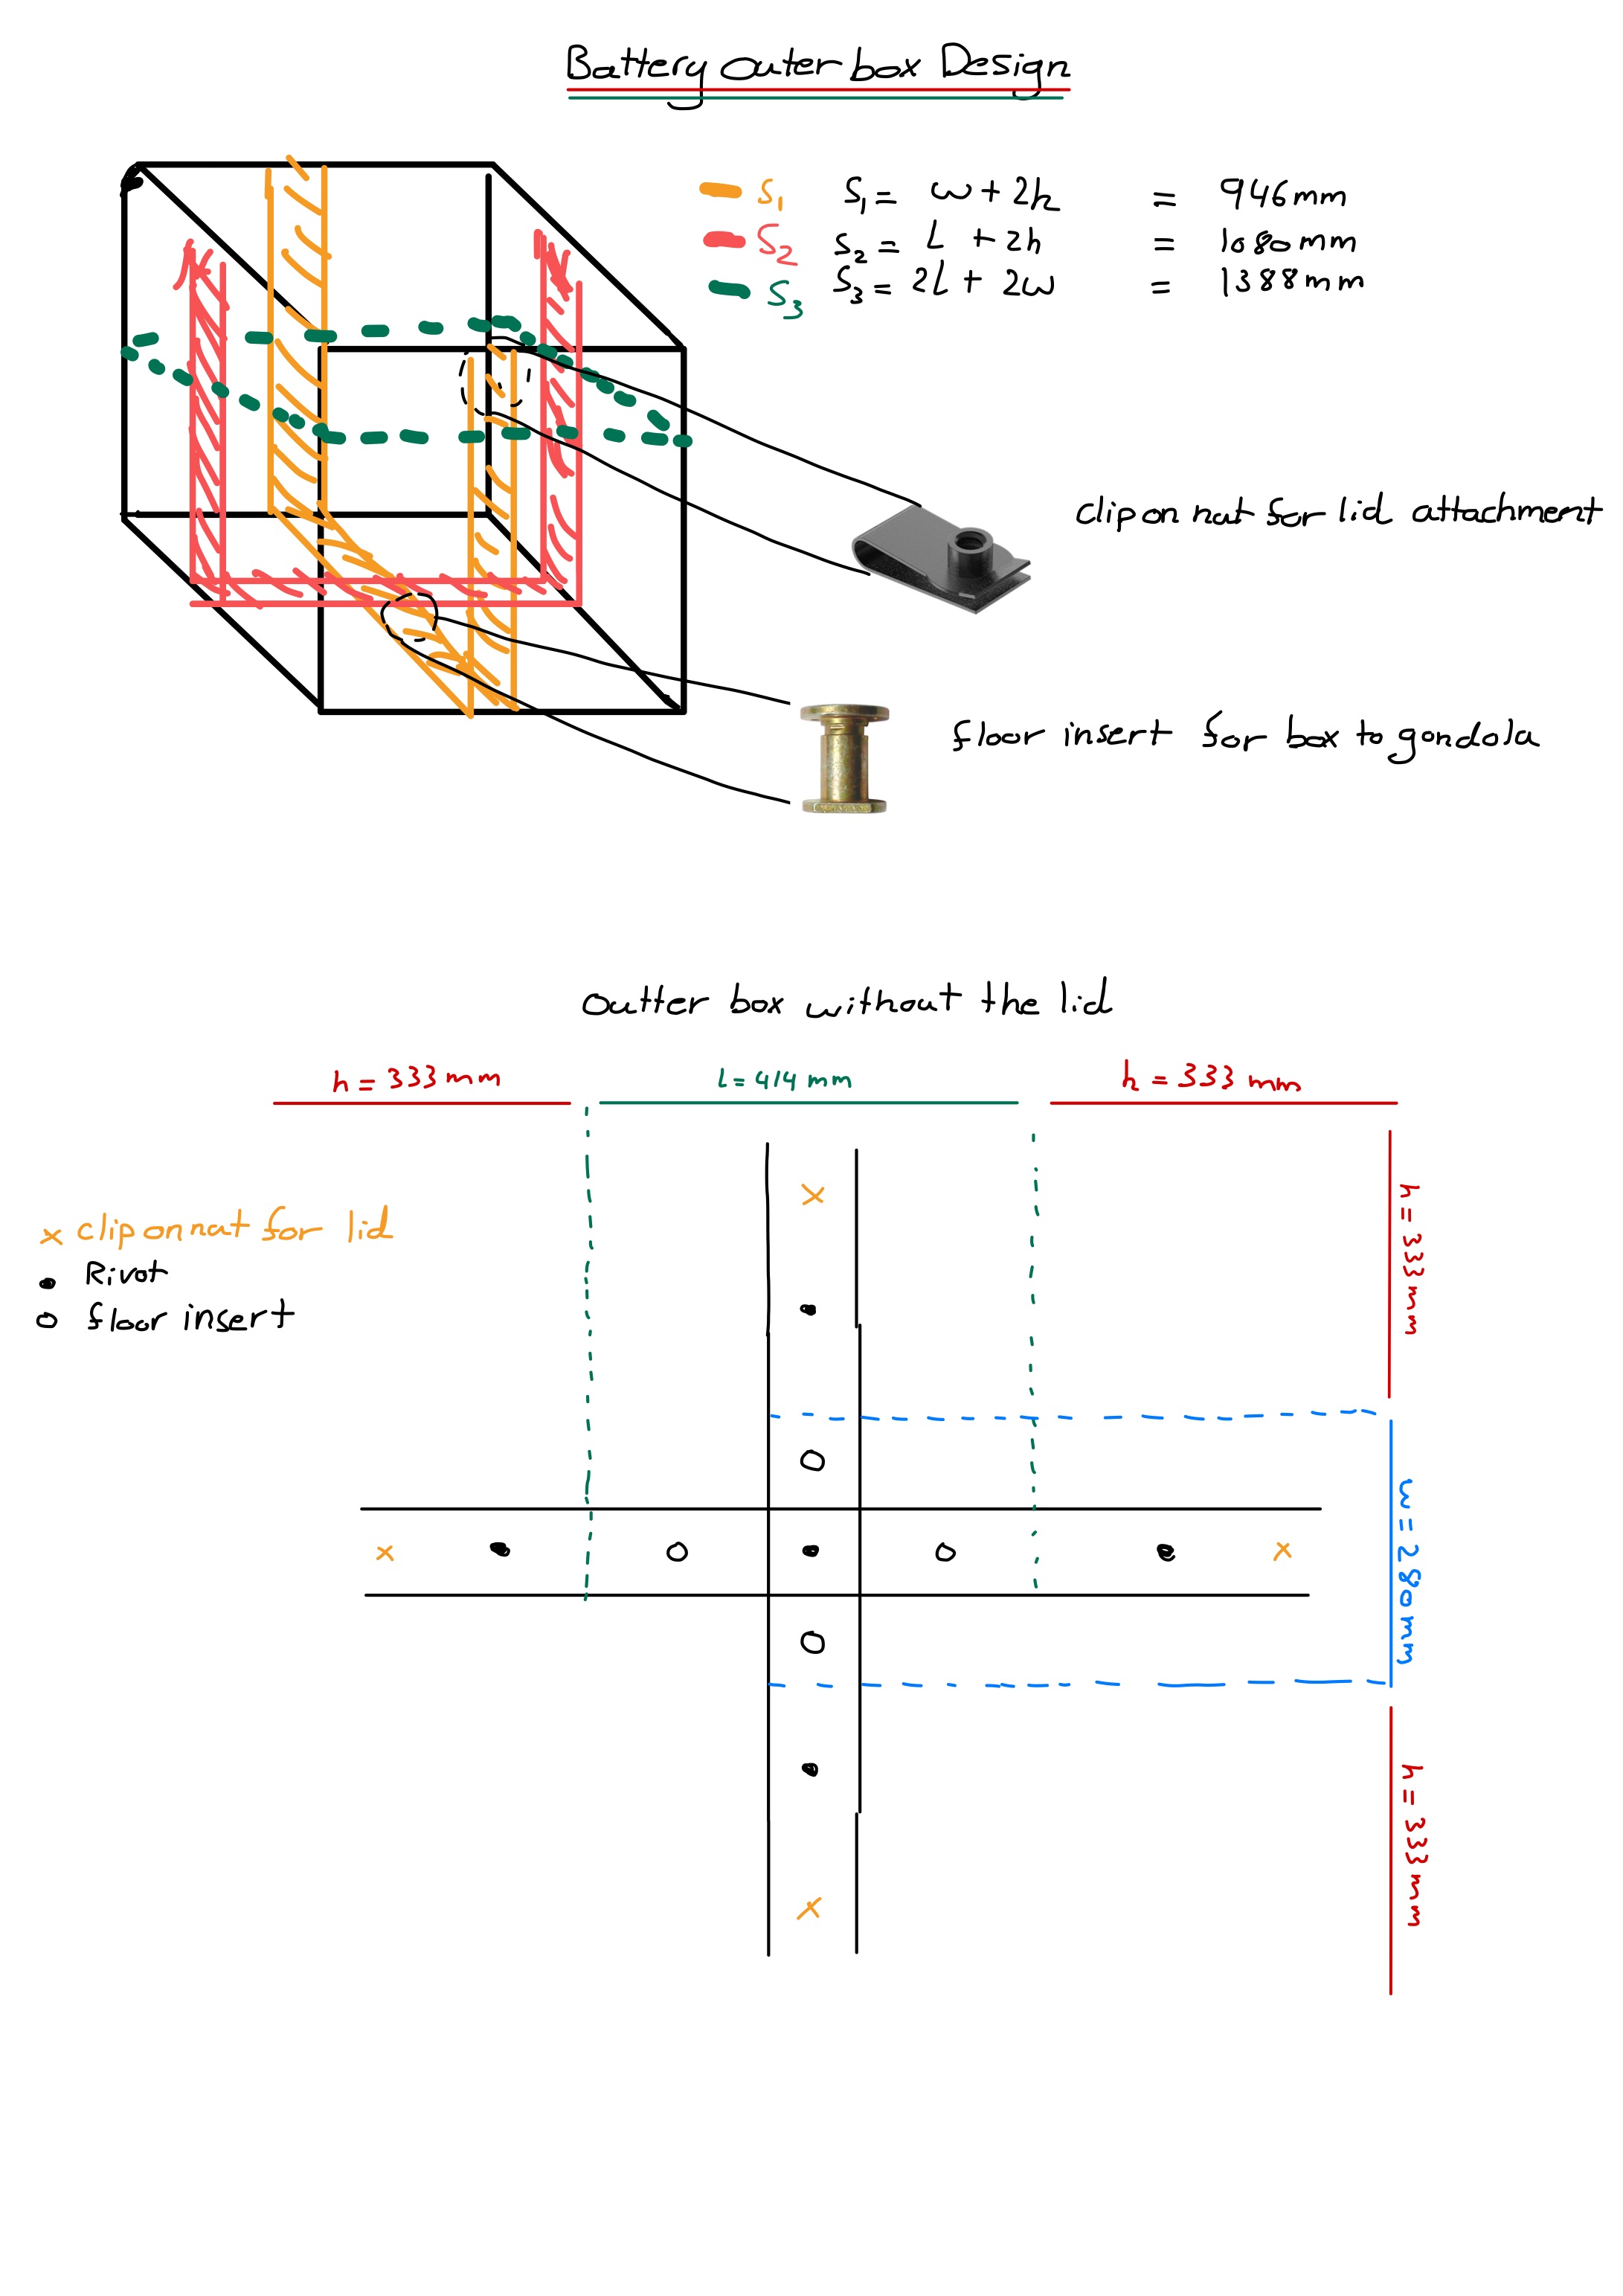 Battery outer box Design
S1 S1 = w + 2h = 946mm
S2 S2 = L + 2h = 1080mm
S3 S3 = 2L + 2w = 1388mm
clip on nat for lid attachment
floor insert for box to gondola
outter box without the lid
h = 333 mm
L = 414 mm
h = 333 mm
h = 333 mm
x clip on nat for lid
Rivot
o floor insert
w = 280mm
h = 333 mm